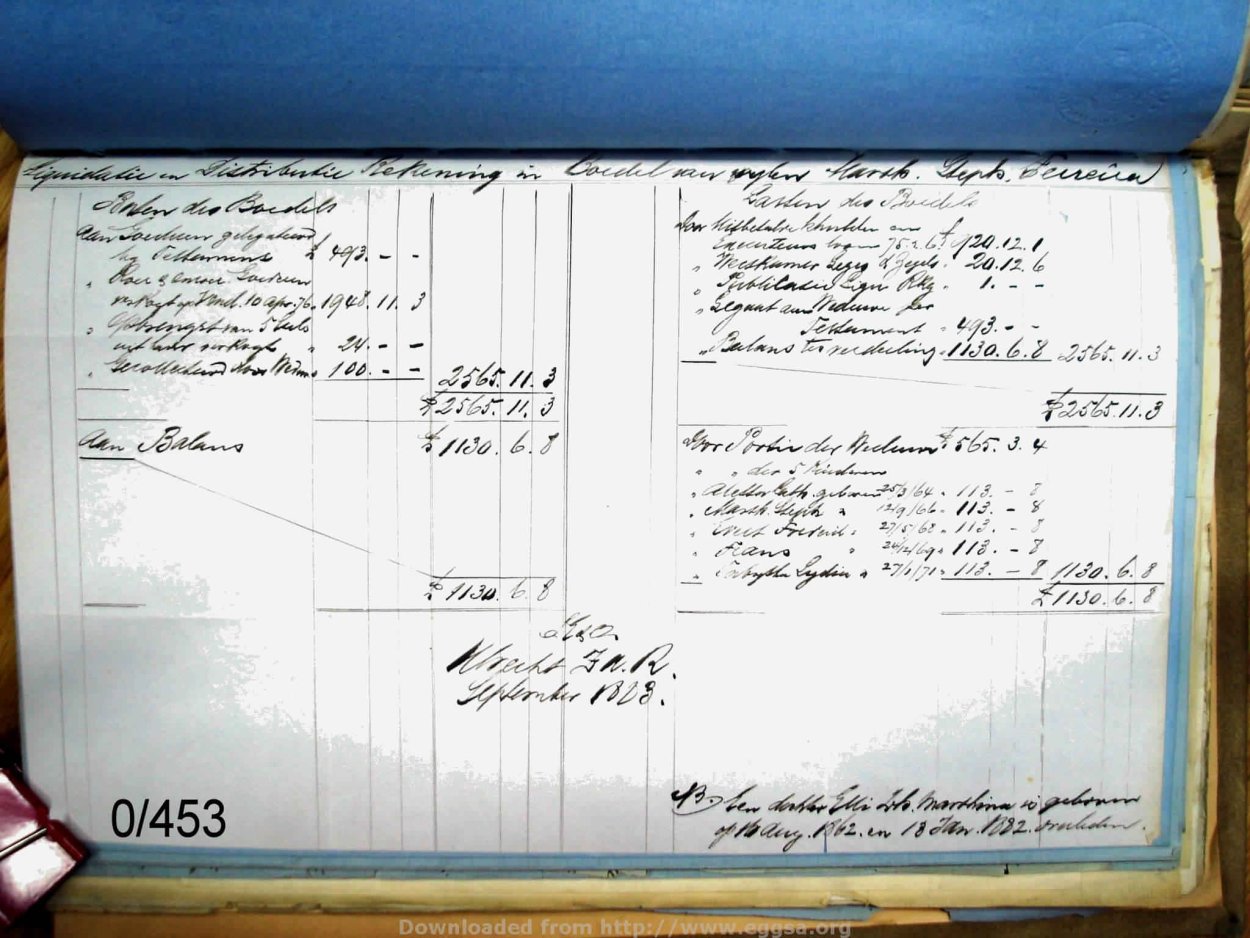 Liquidatie en Distributie Rekening in Boedel van wylen Marth. Steph. Ferreira
Baten des Boedels
Aan Goederen gelegateerd
by Testament £ 493. - -
" Roer & onroer Goederen
verkogt op Vend. 10 Apr. 76 " 1948. 11. 3
" Opbrengst van 5
uit verkogt " 24. - -
" Gecollecteerd door Wedwe " 100. - - 2565. 11. 3
£ 2565. 11. 3
Aan Balans £ 1130. 6. 8
£ 1130. 6. 8
Lasten des Boedels
Door Uitbetaalde schulden en
Executeurs loon 75.2.6 £ 920. 12. 1
" Weeskamer Leges & Zegels " 20. 12. 6
" Publicatie Liqn Rkg " 1. - -
" Legaat aan Weduwe per
Testament " 493. - -
" Balans ter verdeeling " 1130. 6. 8 2565. 11. 3
£ 2565. 11. 3
Door Portie der Weduwe £ 565. 3. 4
" " der 5 Kinderen
" Aletta Cath. geboren 25/3/64 " 113. - 8
" Marth. Steph " 12/9/66 " 113. - 8
" Evert Frederik " 27/5/68 " 113. - 8
" Frans " 24/12/69 " 113. - 8
" Lydia " 27/1/71 " 113. - 8 1130. 6. 8
£ 1130. 6. 8
Utrecht Z A. R.
September 1883.
NB. Een dochter Elli Joh. Marthina is geboren
op 16 Aug. 1862. en 18 Jan. 1882. overleden.
0/453
Downloaded from http://www.eggsa.org